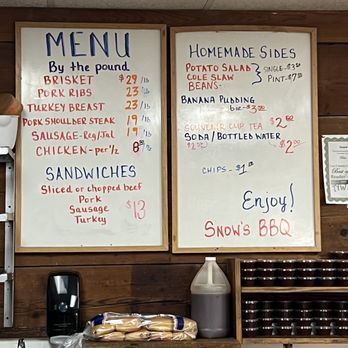 MENU
By the pound
BRISKET $29/lb
PORK RIBS 23/lb
TURKEY BREAST 23/lb
PORK SHOULDER STEAK 19/lb
SAUSAGE-Reg/Jal 19/lb
CHICKEN-per 1/2
SANDWICHES
Sliced or chopped beef
Pork
Sausage
Turkey
$13
HOMEMADE SIDES
POTATO SALAD
COLE SLAW
BEANS-
SINGLE-
PINT-
BANANA PUDDING
SOUVENIR CUP TEA
SODA/BOTTLED WATER
CHIPS-
Enjoy!
SNOW'S BBQ